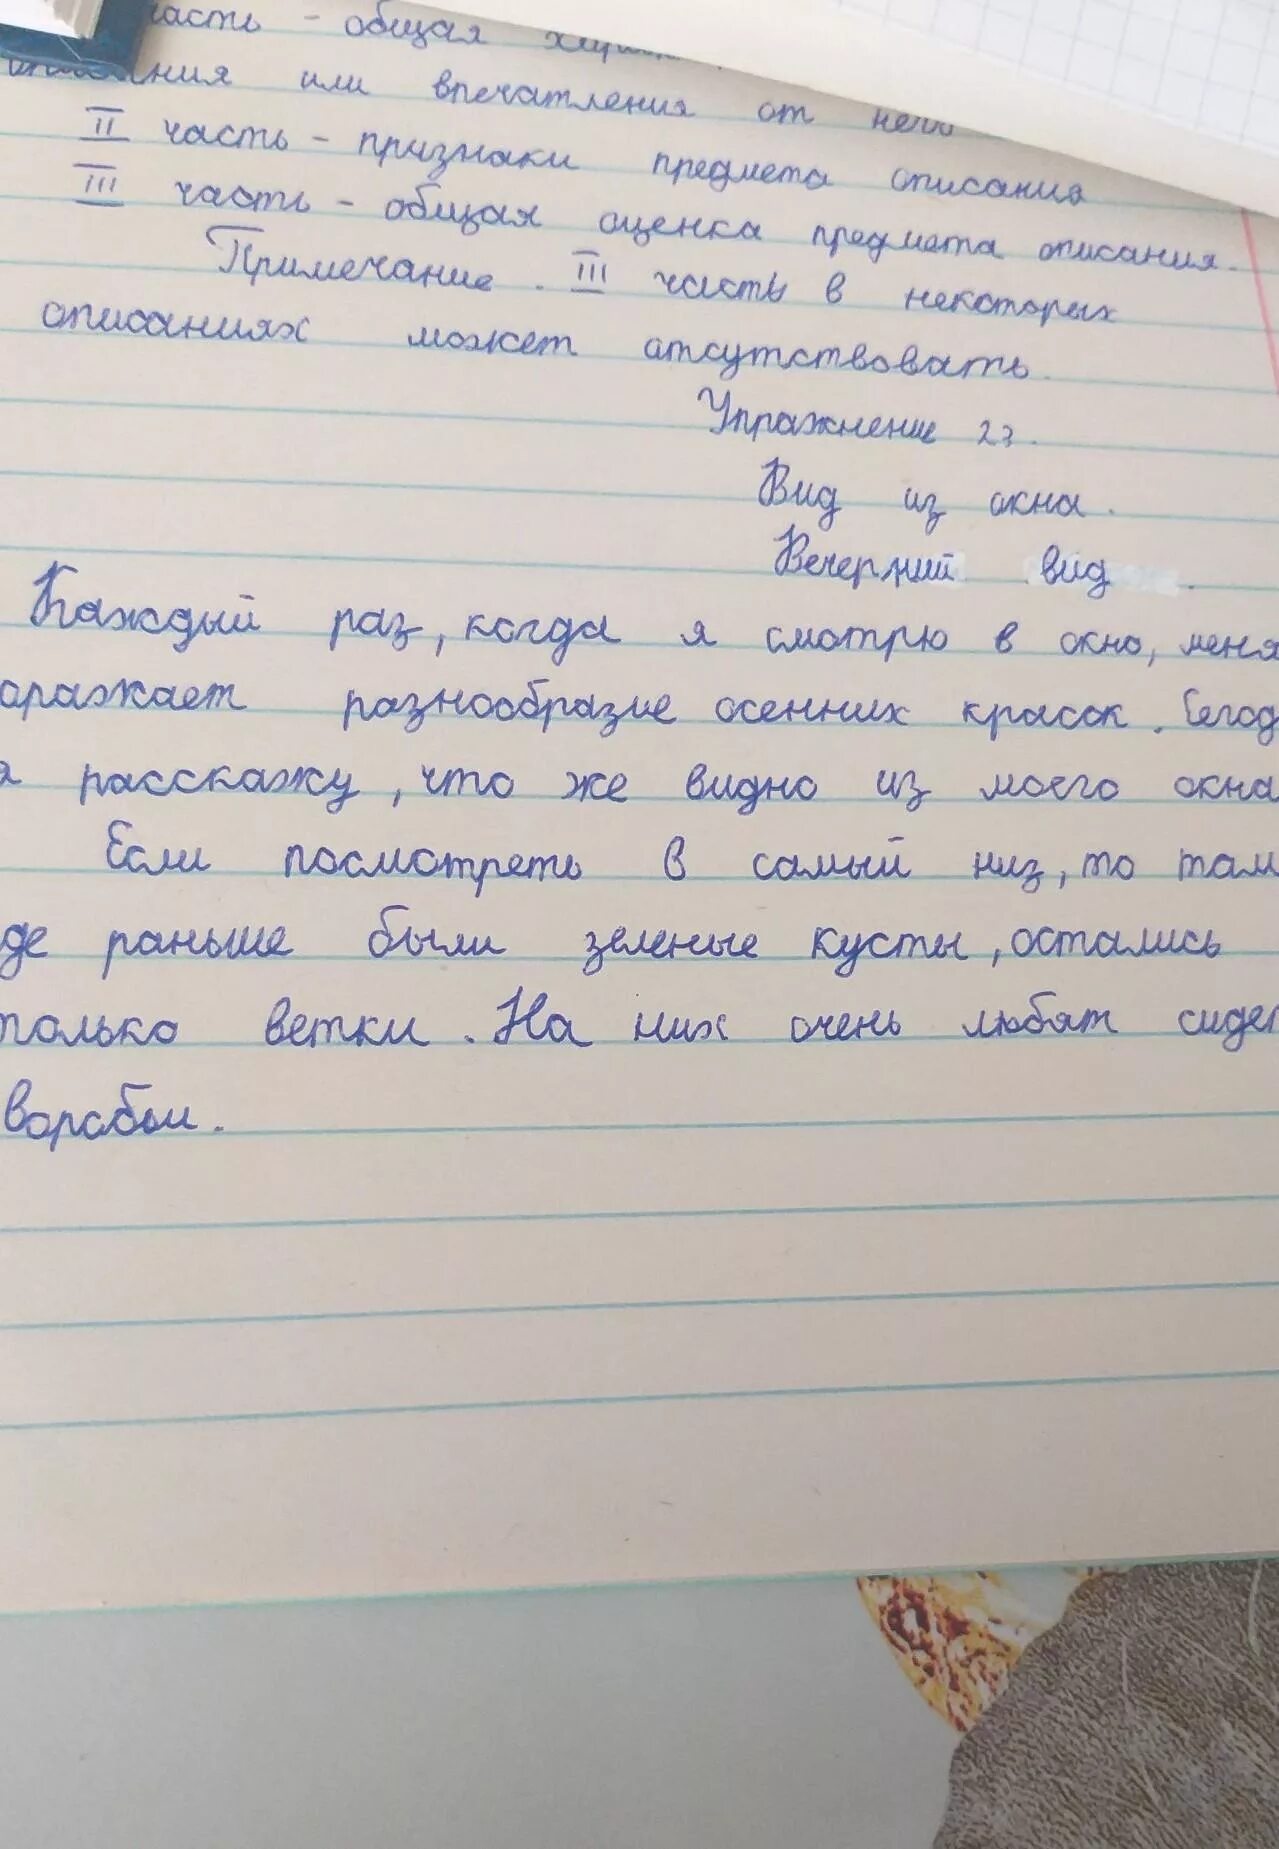 часть - общая
описания или впечатления от него
II часть - признаки предмета описания
III часть - общая оценка предмета описания.
Примечание. III часть в некоторых
описаниях может отсутствовать.
Упражнение 23.
Вид из окна.
Вечерний вид.
Каждый раз, когда я смотрю в окно, меня
оражает разнообразие осенних красок. Сегод
я расскажу, что же видно из моего окна
Если посмотреть в самый низ, то там
де раньше были зеленые кусты, остались
только ветки. На них очень любят сидет
воробьи.